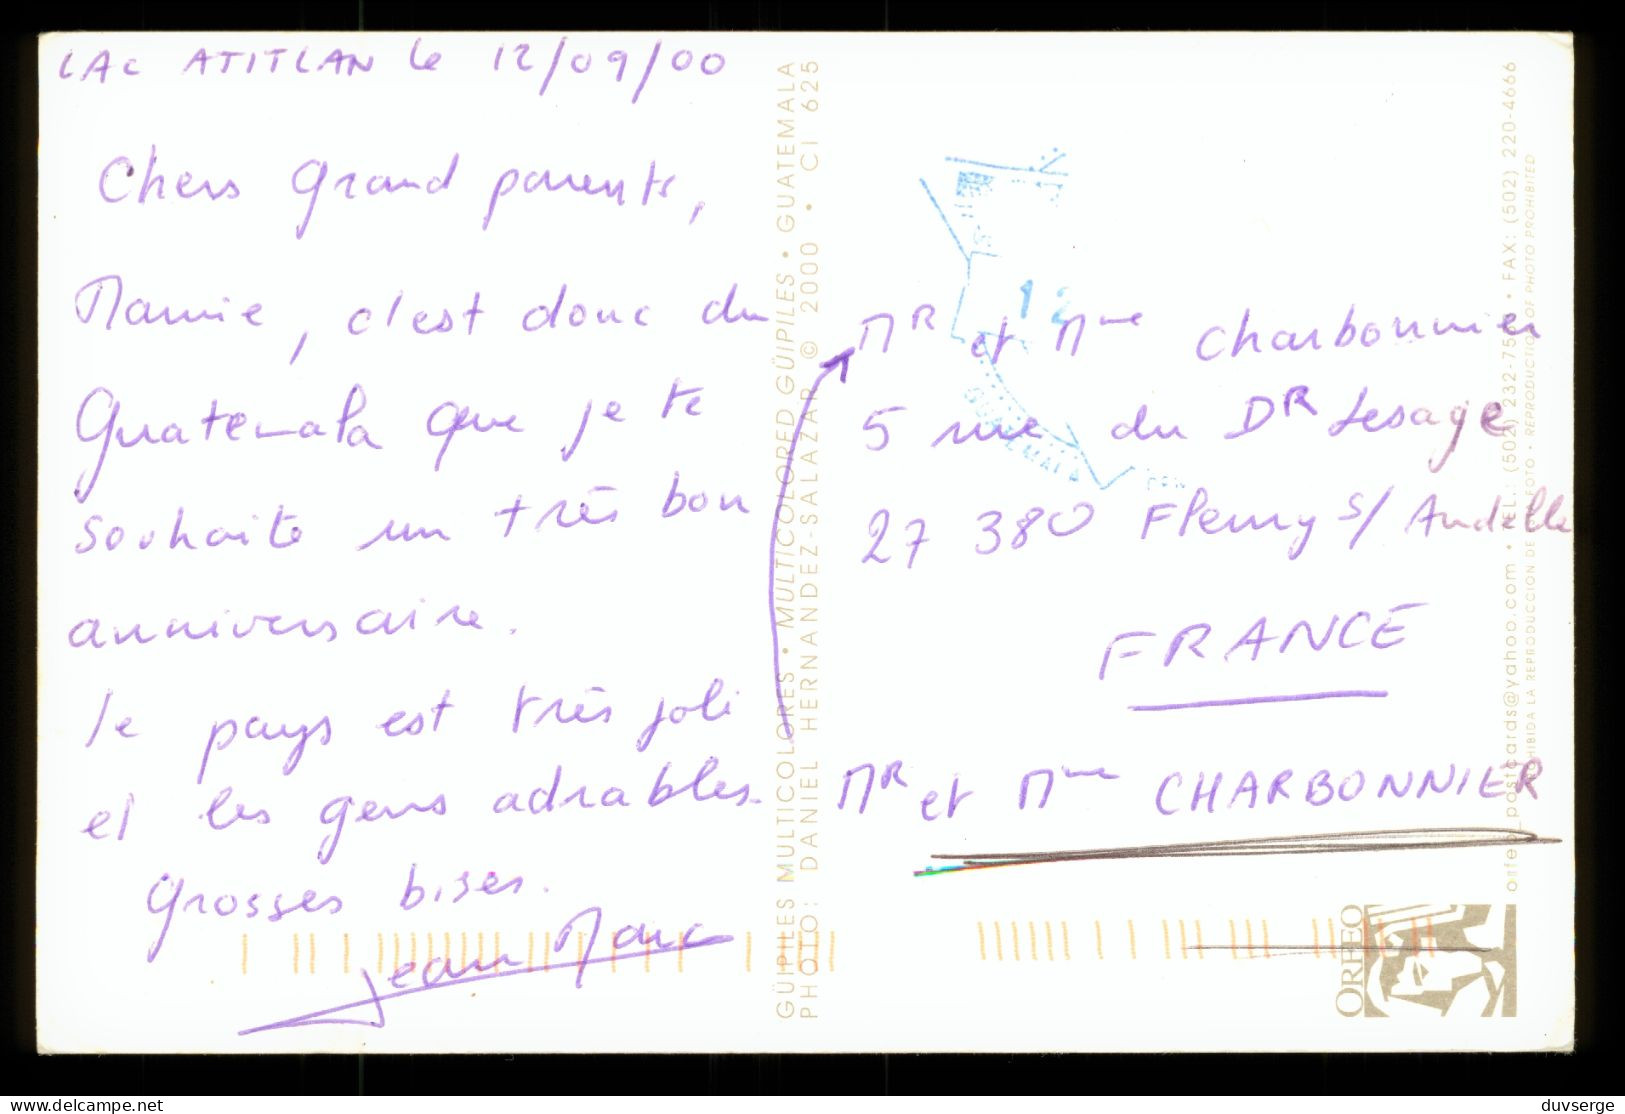 LAC ATITLAN le 12/09/00
Chers Grand parents,
Mamie, c'est donc du
Guatemala que je te
souhaite un très bon
anniversaire.
le pays est très joli
et les gens adrables.
Grosses bises.
Jean Marc
GÜIPILES MULTICOLORES • MULTICOLORED GÜIPILES • GUATEMALA
PHOTO: DANIEL HERNANDEZ-SALAZAR © 2000 • CI 625
12
GUATEMALA
MR et Mme Charbonnier
5 rue du DR Lesage
27 380 Fleury s/ Andelle
FRANCE
MR et Mme CHARBONNIER
orfeo_postcards@yahoo.com • TEL.: (502) 232-75 • FAX: (502) 220-4666
PROHIBIDA LA REPRODUCCION DE FOTO • REPRODUCTION OF PHOTO PROHIBITED
ORFEO
www.delcampe.net
duvserge